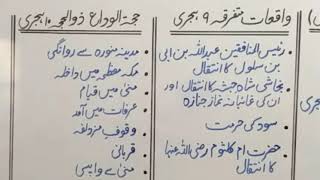 واقعات متفرقہ ۹ ہجری
رئیس المنافقین عبداللہ بن ابی
بن سلول کا انتقال
نجاشی شاہ حبشہ کا انتقال اور
ان کی غائبانہ نماز جنازہ
سود کی حرمت
حضرت ام کلثوم رضی اللہ عنہا
کا انتقال
حجۃ الوداع ذوالحجہ ۱۰ ہجری
مدینہ منورہ سے روانگی
مکہ معظمہ میں داخلہ
منیٰ میں قیام
عرفات میں آمد
وقوف مزدلفہ
قربانی
منیٰ سے واپسی